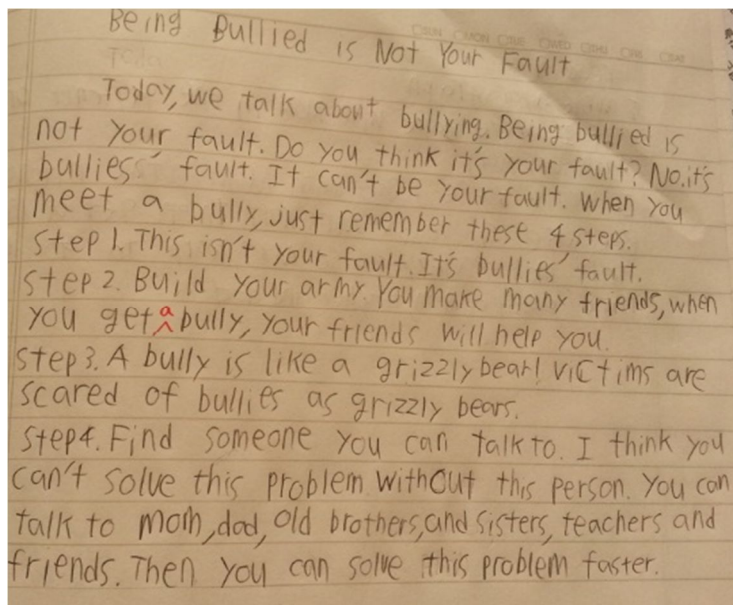 Being Bullied is Not Your Fault
Today, we talk about bullying. Being bullied is
not your fault. Do you think it's your fault? No, it's
bullies' fault. It can't be your fault. When you
meet a bully, just remember these 4 steps.
Step 1. This isn't your fault. It's bullies' fault.
Step 2. Build your army. You make many friends, when
you get a bully, your friends will help you.
Step 3. A bully is like a grizzly bear! Victims are
scared of bullies as grizzly bears.
Step 4. Find someone you can talk to. I think you
can't solve this problem without this person. You can
talk to mom, dad, old brothers, and sisters, teachers and
friends. Then you can solve this problem faster.